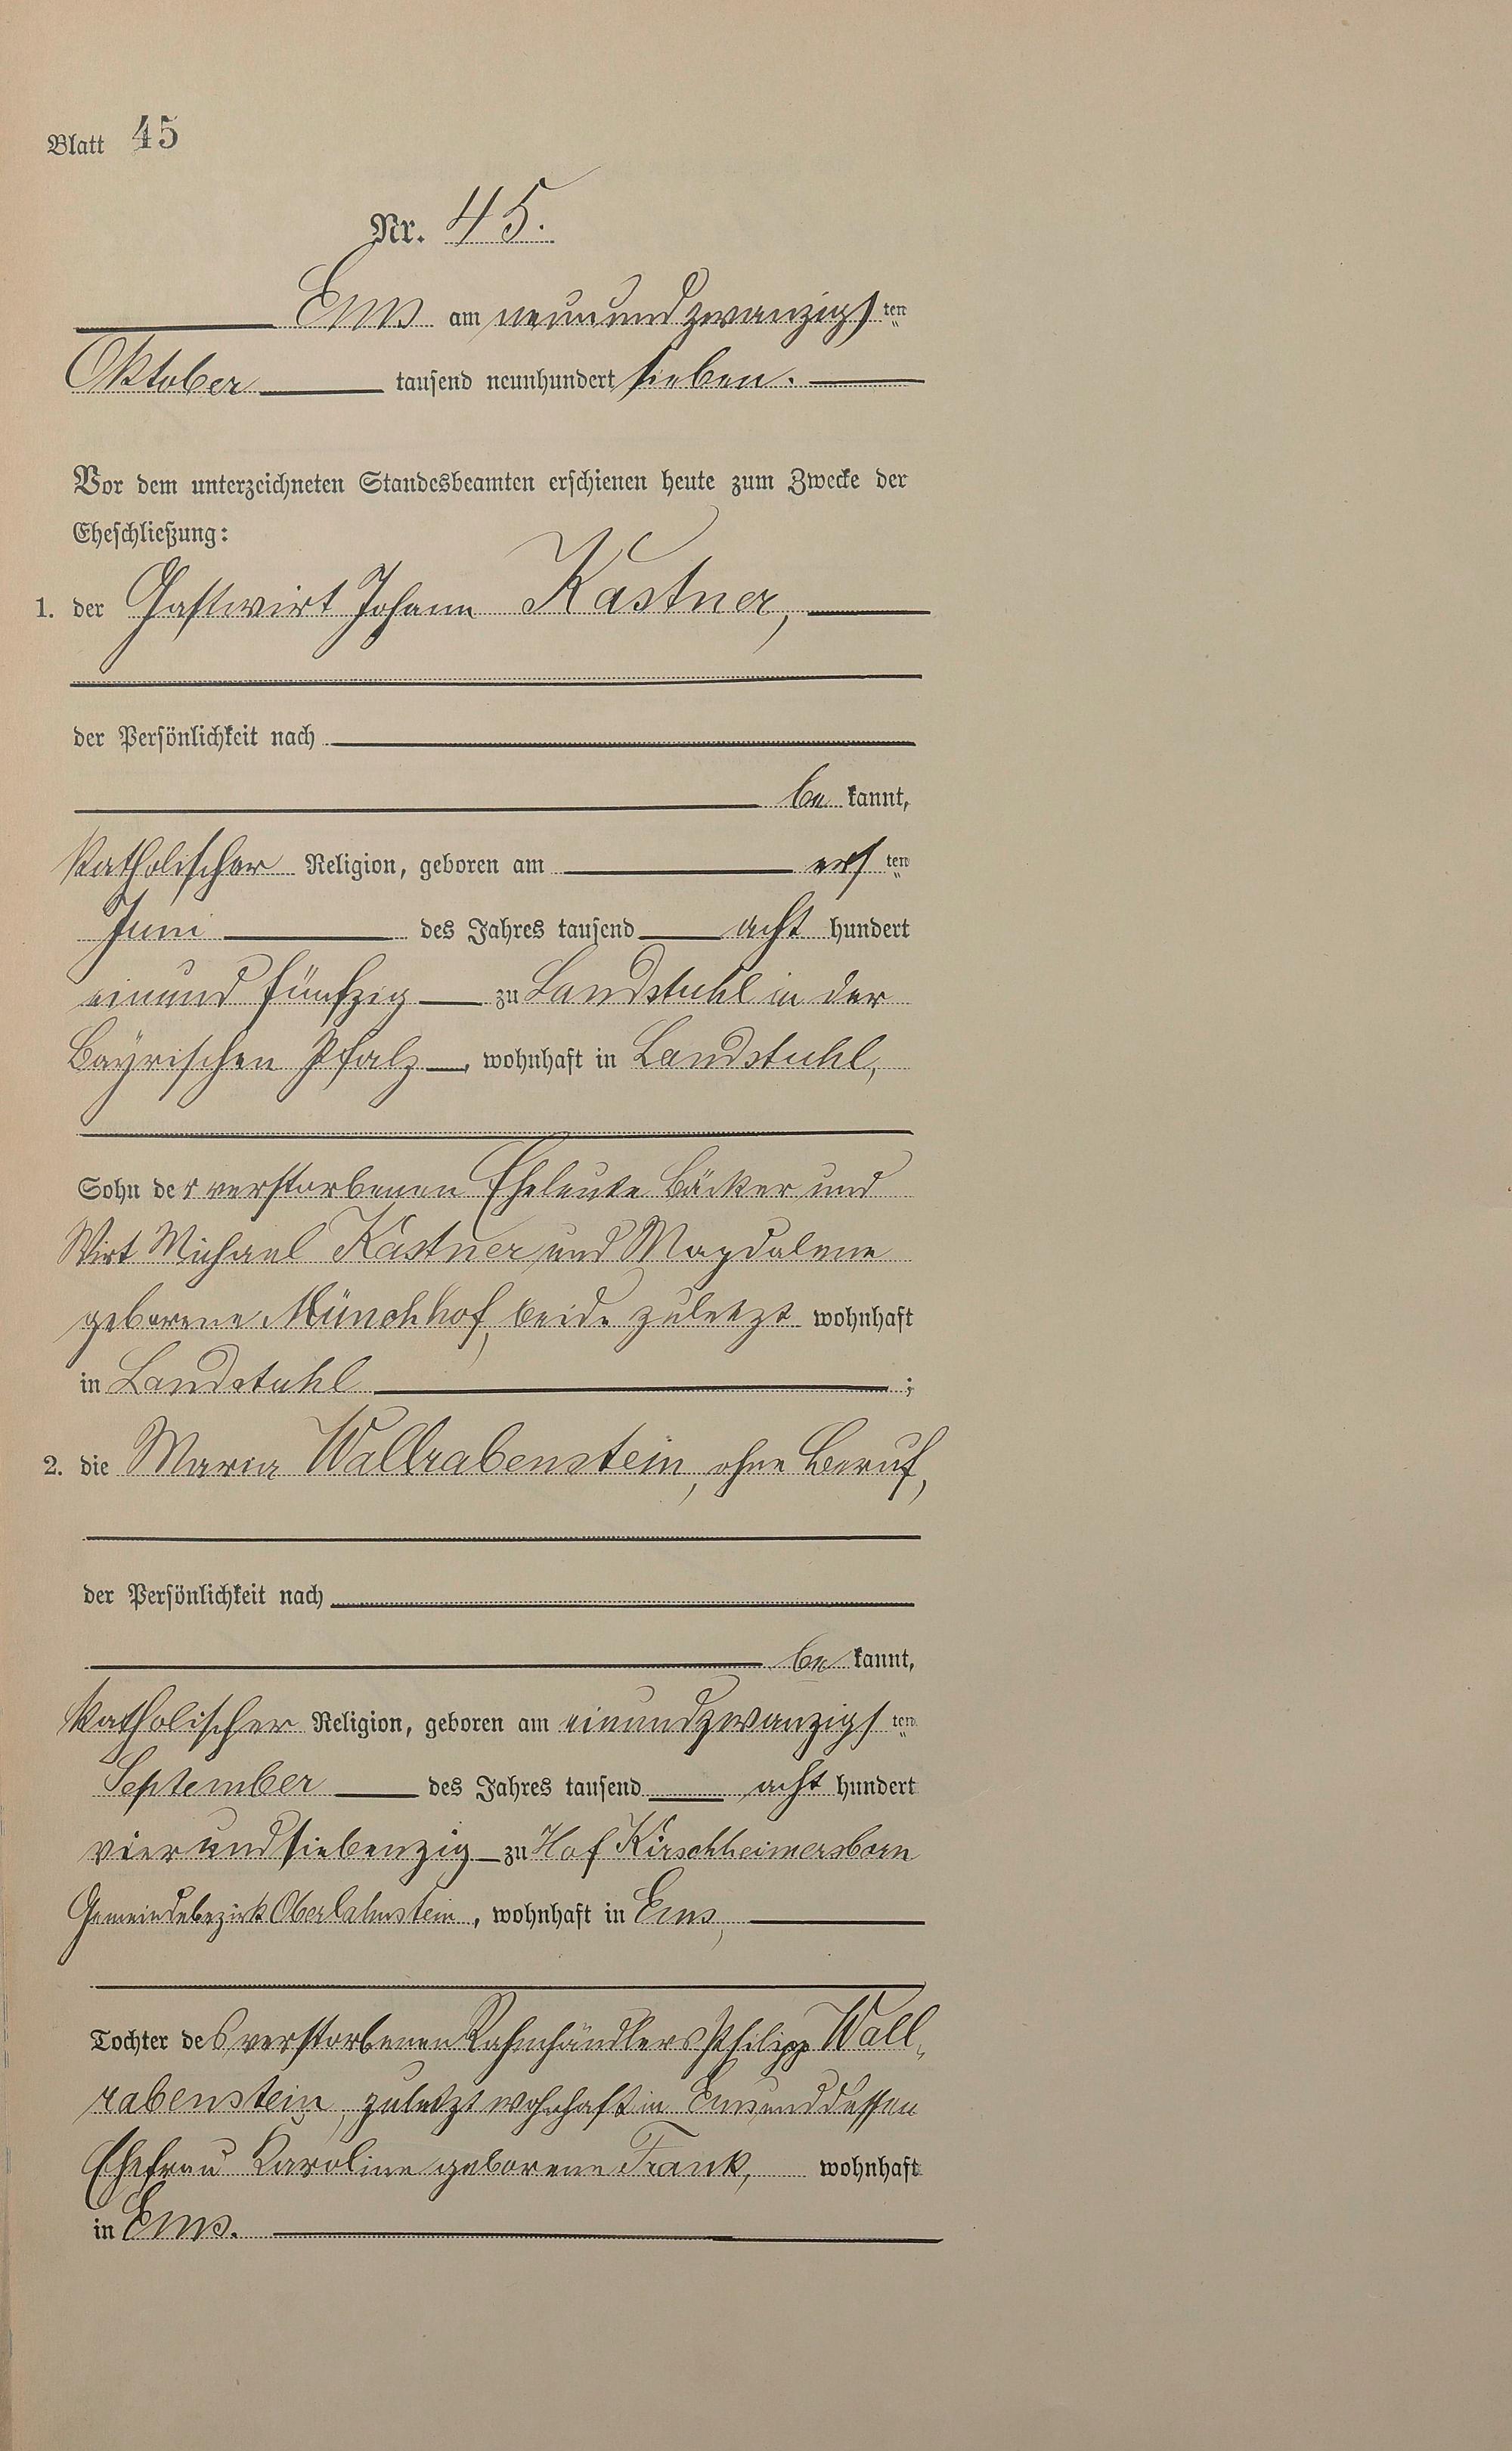 Blatt 45
Nr. 45.
Ems am neunundzwanzigsten
Oktober tausend neunhundert sieben.
Vor dem unterzeichneten Standesbeamten erschienen heute zum Zwecke der
Eheschließung:
1. der Gastwirt Johann Kastner,
der Persönlichkeit nach
be kannt,
katholischer Religion, geboren am ersten
Juni des Jahres tausend acht hundert
einund fünfzig zu Landstuhl in der
Bayrischen Pfalz, wohnhaft in Landstuhl,
Sohn der verstorbenen Eheleute Bäcker und
Wirt Michael Kastner und Magdalene
geborene Münchhof, beide zuletzt wohnhaft
in Landstuhl ;
2. die Maria Wallrabenstein, ohne Beruf,
der Persönlichkeit nach
be kannt,
katholischer Religion, geboren am einundzwanzigsten
September des Jahres tausend acht hundert
vierundsiebenzig zu Hof Kirschheimersborn
Gemeindebezirk Oberlahnstein, wohnhaft in Ems,
Tochter des verstorbenen Rahmhändlers Philipp Wall-
rabenstein, zuletzt wohnhaft in Ems und dessen
Ehefrau Karoline geborene Frank, wohnhaft
in Ems.